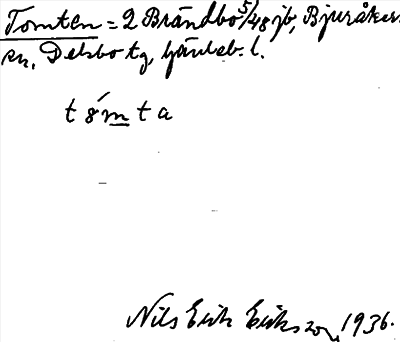 Tomten = 2 Brändbo 5/48 jb, Bjuråkers
sn, Delsbo tg, Gävleb. l.
t ȣ́m t a
Nils Erik Eriksson, 1936.